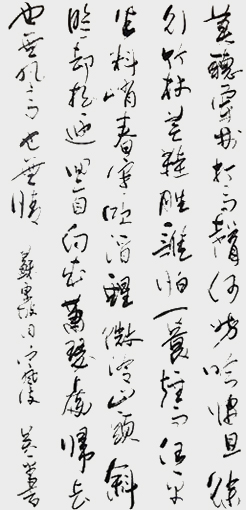 莫聽穿林打雨聲何妨吟嘯且徐
行竹杖芒鞋勝誰怕一蓑煙雨任平
生料峭春風吹酒醒微冷山頭斜
照却相迎回首向來蕭瑟處歸去
也無風雨也無晴 蘇東坡詞定風波 書